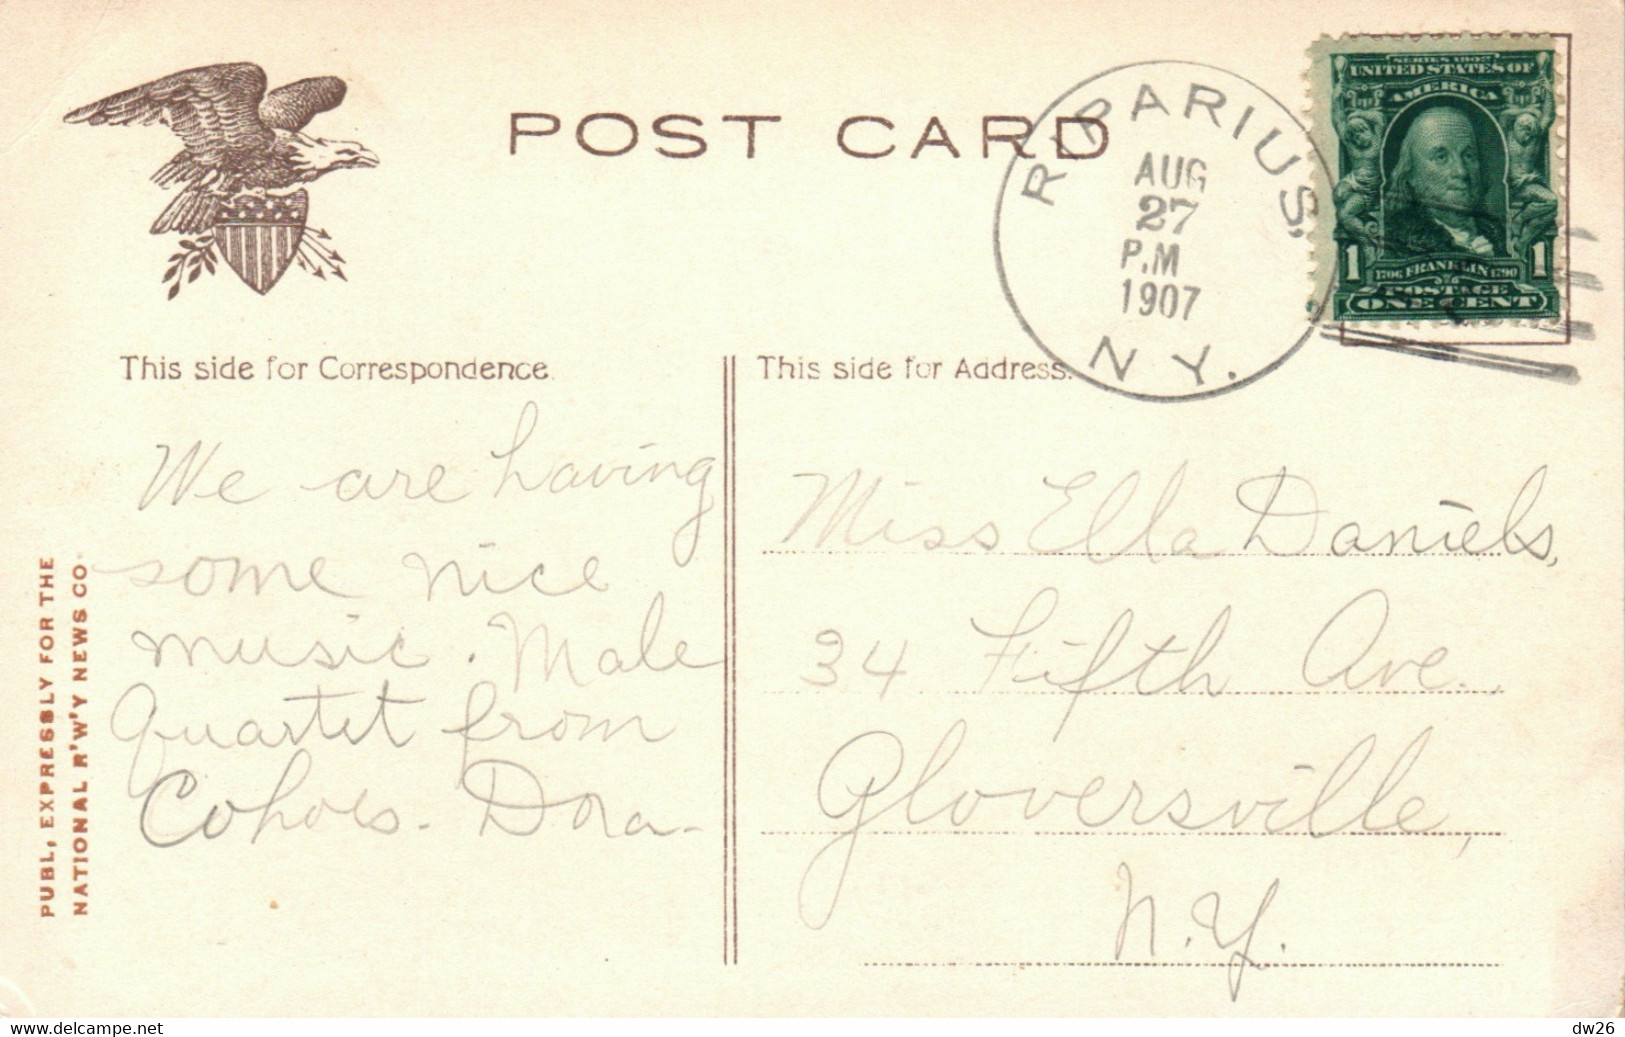 POST CARD
R PARIUS,
AUG
27
P.M
1907
N Y.
SERIES 1902
UNITED STATES OF
AMERICA
1 1706 FRANKLIN 1790 1
POSTAGE
ONE CENT
This side for Correspondence.
We are having
some nice
music. Male
Quartet from
Cohoes. Dora-
This side for Address.
Miss Ella Daniels,
34 Fifth Ave.,
Gloversville,
N.Y.
PUBL, EXPRESSLY FOR THE
NATIONAL R'W'Y NEWS CO
www.delcampe.net
dw26